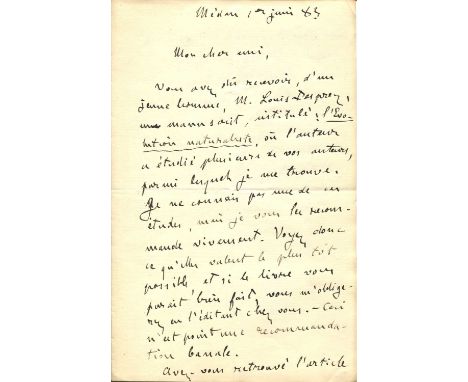 Médan 1er juin 83
Mon cher ami,
Vous avez dû recevoir, d'un
jeune homme, M. Louis Desprez,
un manuscrit, intitulé: l'Evo-
lution naturaliste, où l'auteur
a étudié plusieurs de vos auteurs,
parmi lesquels je me trouve.
Je ne connais pas une de ces
études, mais je vous les recom-
mande vivement. Voyez donc
ce qu'elles valent le plus tôt
possible et si le livre vous
paraît bien fait, vous m'oblige-
rez en l'éditant chez vous. – Ceci
n'est point une recommanda-
tion banale.
Avez-vous retrouvé l'article